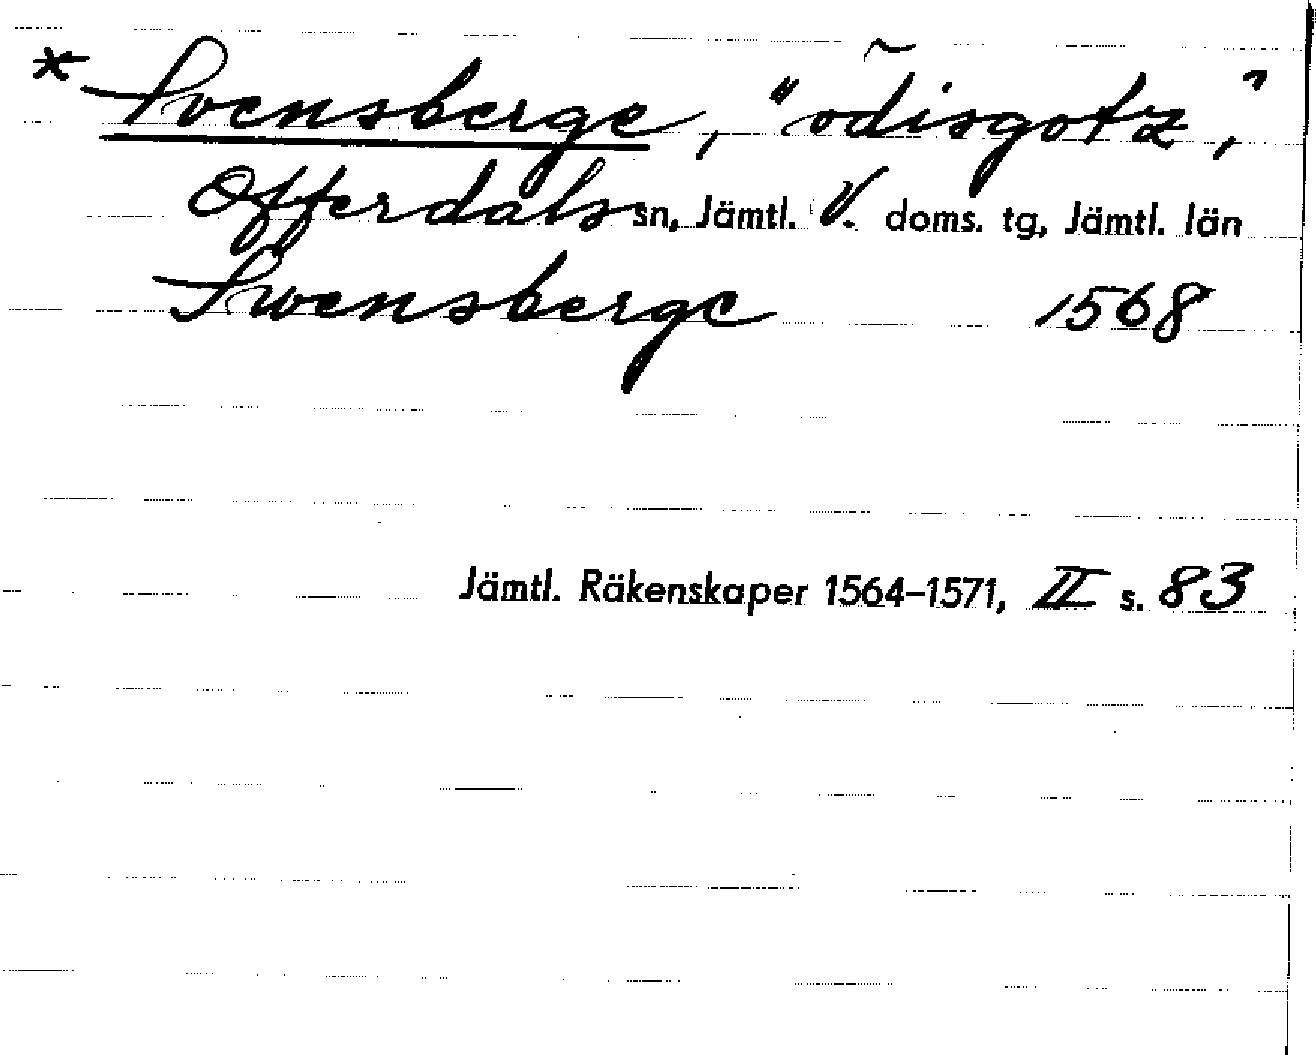 * Svensberge, "ödisgotz,"
Offerdals sn, Jämtl. V. doms. tg, Jämtl. län
Swensberge 1568
Jämtl. Räkenskaper 1564–1571, II s. 83